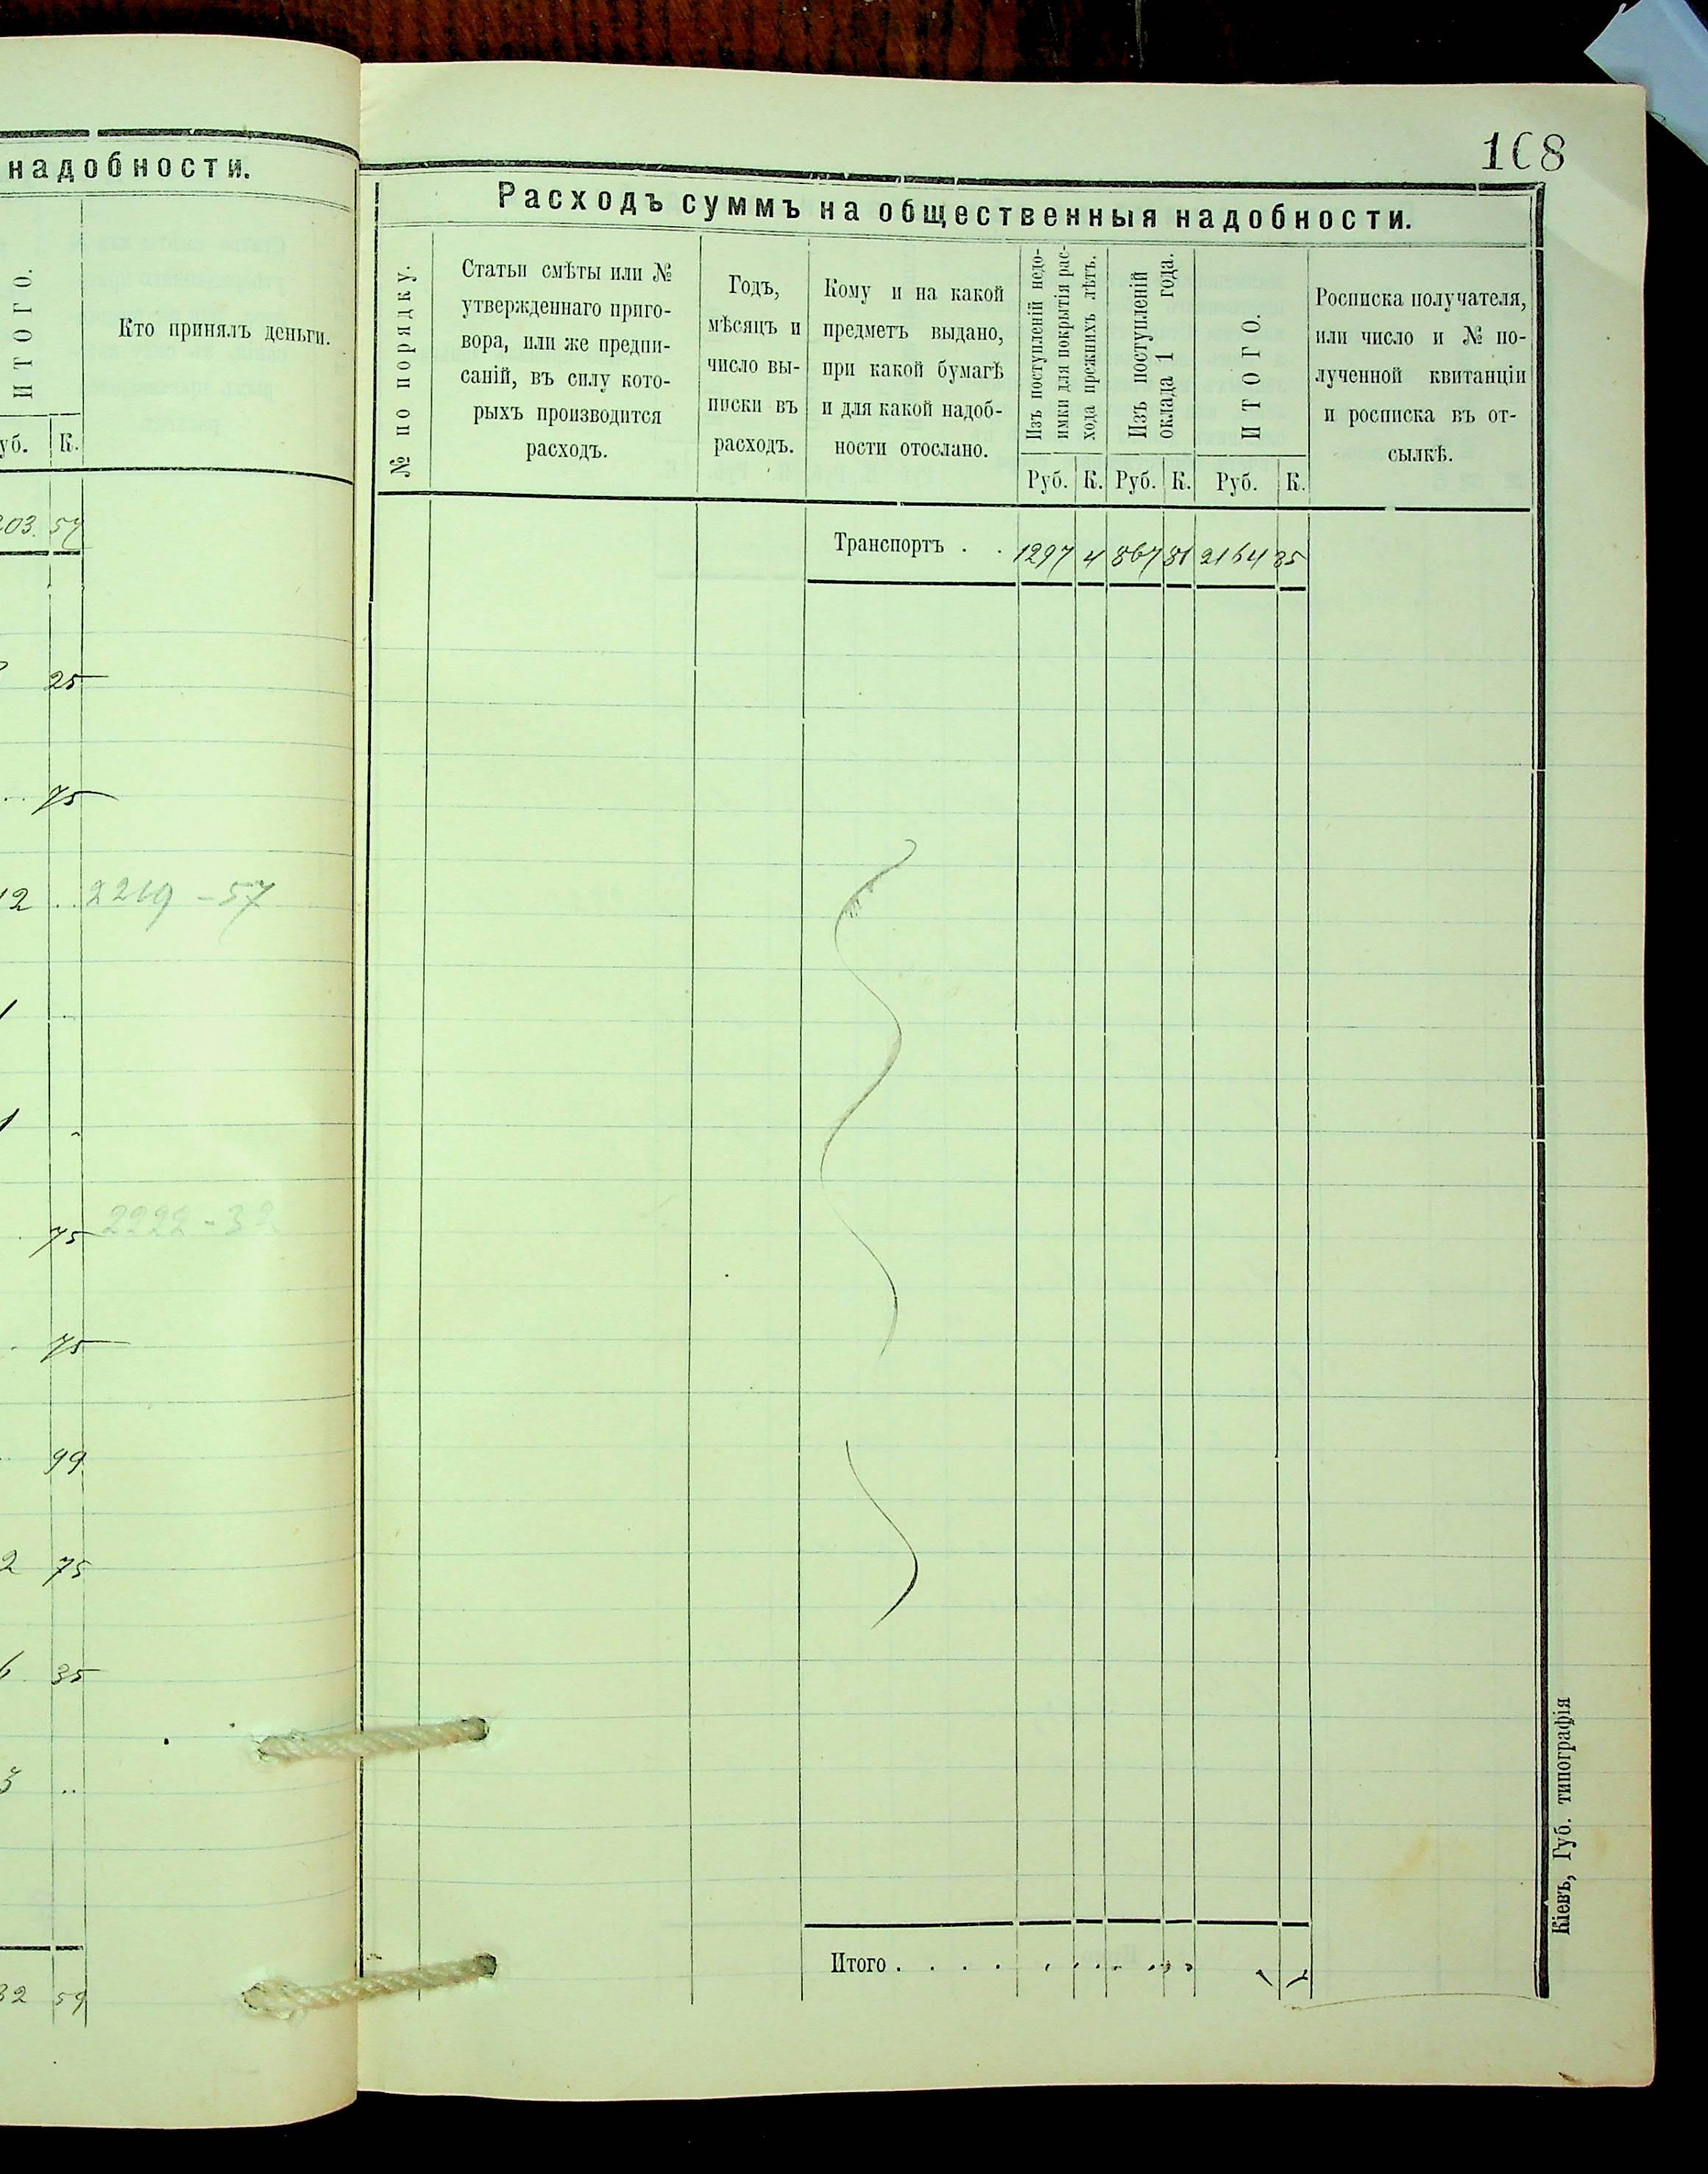 надобности.
ИТОГО.
Кто принялъ деньги.
уб. К.
203. 57
25
75
12 .. 2219 - 57
75 2222 - 32
75
99
2 75
6 35
3 ..
32 59
168
Расходъ суммъ на общественныя надобности.
№ по порядку.
Статьи смѣты или №
утвержденнаго приго-
вора, или же предпи-
саній, въ силу кото-
рыхъ производится
расходъ.
Годъ,
мѣсяцъ и
число вы-
писки въ
расходъ.
Кому и на какой
предметъ выдано,
при какой бумагѣ
и для какой надоб-
ности отослано.
Изъ поступленій недо-
имки для покрытія рас-
хода прежнихъ лѣтъ.
Изъ поступленій
оклада 1 года.
ИТОГО.
Росписка получателя,
или число и № по-
лученной квитанціи
и росписка въ от-
сылкѣ.
Руб. К. Руб. К. Руб. К.
Транспортъ . . 1297 4 867 81 2164 85
Итого . . . .
Кіевъ, Губ. типографія